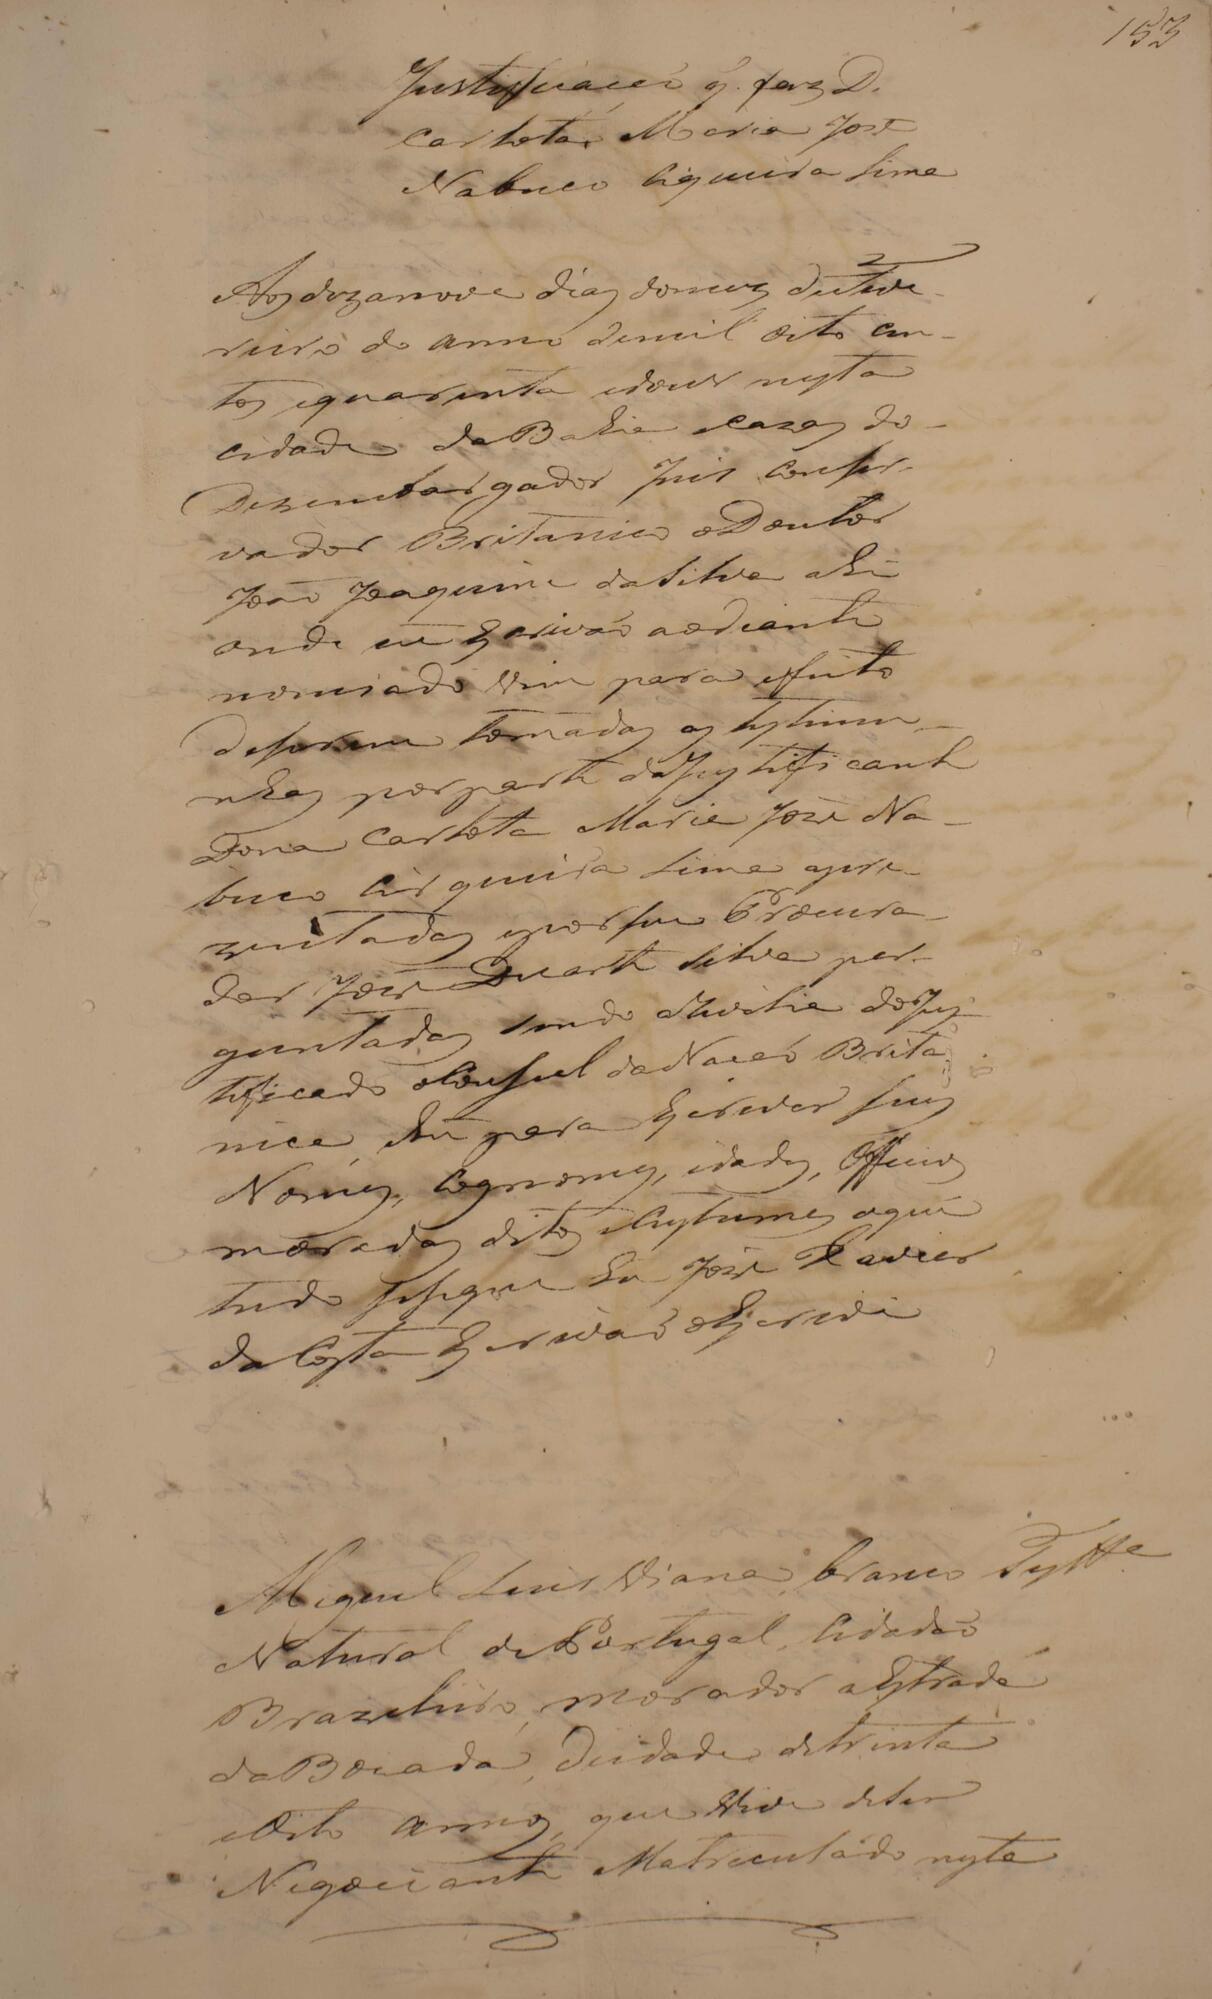 153
Justificacaõ q. faz D.
Carlota Maria José
Nabuco Cirqueira Lima
Aos dezanove dias domez deFeve-
reiro do anno demil oito cen-
tos equarenta edous nesta
cidade daBahia ecazas do
Dezembargador Juis Conser-
vador Britanico oDoutor
João Joaquim daSilva ahi
onde eu Escrivaõ aodiante
nomiado vim para effeito
deserem tomadas as testemu-
nhas porparte daJustificante
Dona Carlota Maria Jozé Na-
buco Cirqueira Lima apre-
zentadas eporseu Procura-
dor Jozé Duarte Silva per-
guntadas sendo áRevelia doJus-
tificado oConsul daNacaõ Brita
nica, ahi para Escrever seus
Nomes, Cognomes, idades, Officios
moradas ditos eCustumes oque
tudo sesegue Eu Jozé Xavier
daCosta Escrivaõ oEscrevi
Miguel Luis Viana, branco Testª
Natural dePortugal, Cidadaõ
Brazeleiro, morador aEstrada
daBoiada, deidade detrinta
eoito annos, que vive deser
Negociante Matriculado nesta